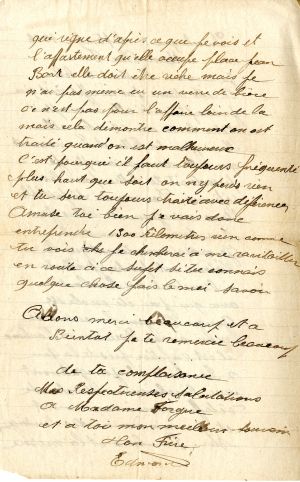 qui règne d'après ce que je vois et
l'appartement qu'elle occupe place pean
Bart elle doit être riche mais je
n'ai pas même eu un verre de bière
ce n'est pas pour l'affaire loin de la
mais cela démontre comment on est
traité quand on est malheureux
C'est pourquoi il faut toujours fréquenté
plus haut que soit on n'y perds rien
et tu sera toujours traité avec différence
Amuse toi bien je vais donc
entreprendre 1300 Kilomètres rien comme
tu vois che je chercherai à me ravitailler
en route à ce sujet si tu connais
quelque chose fais le moi savoir
Allons merci beaucoup et a
Bientot je te remercie beaucoup
de ta complaisance
Mes Respectueuses Salutations
a Madame Forgue
et a toi mon meilleur souvenir
Ton Frère